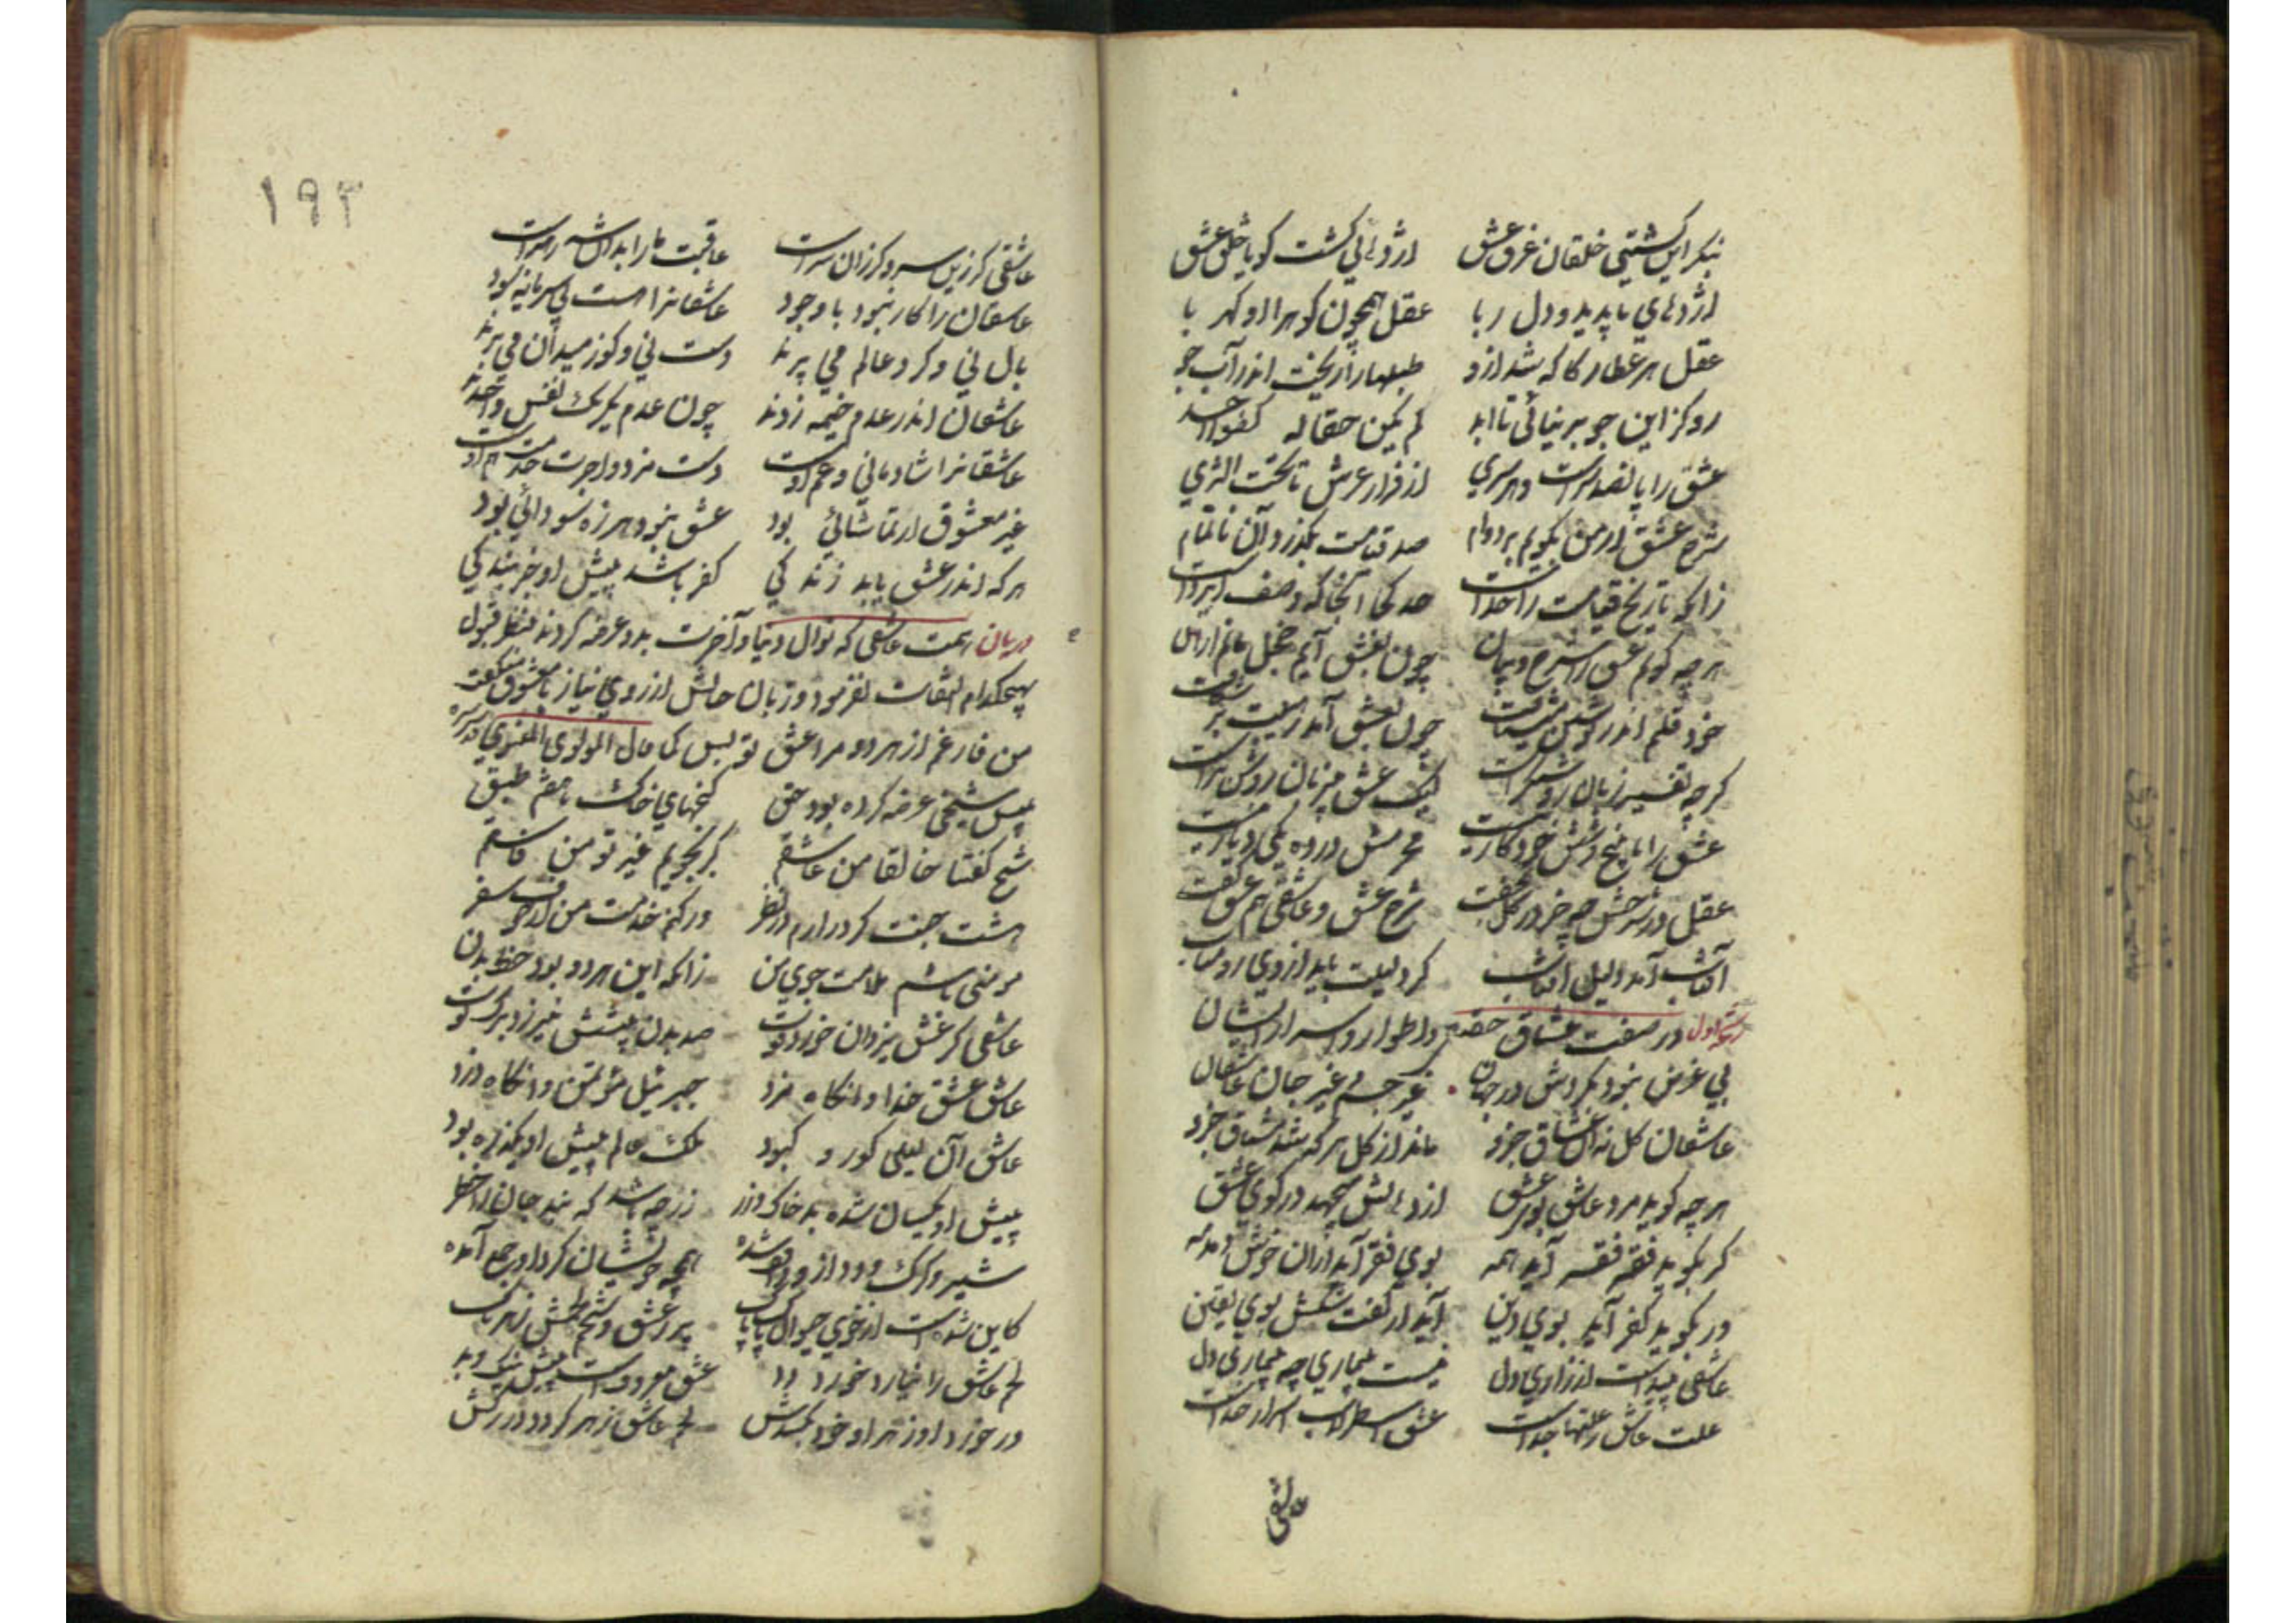 بنکر این کشتیی خلقان غرق عشق اژدهائی کشت کویا خلق عشق
اژدهای ناپدید و دل ربا عقل همچون کوه را او کهر با
عقل هر عطار کاکه شد ازو طبلها را ریخت اندر آب جو
رو کزاین جو بر نیائی تا ابد لم یکن حقا له کفوا احد
عشق را پانصد پرست و هر پری از فراز عرش تا تحت الثری
شرح عشق ار من بکویم بر دوام صد قیامت بکذرد و آن ناتمام
زانکه تاریخ قیامت را حدست حد کجا آنجا که وصف ایزدست
هر چه کویم عشق را شرح و بیان چون بعشق آیم خجل مانم از آن
خود قلم اندر نوشتن می شتافت چون بعشق آمد قلم بر خود شکافت
کر چه تفسیر زبان روشنکرست لیک عشق بی زبان روشن ترست
عشق را با پنج و شش خود کار نیست محرمش در ده یکی دیار نیست
عقل در شرحش چو خر در کل بخفت شرح عشق و عاشقی هم عشق کفت
آفتاب آمد دلیل آفتاب کر دلیلت باید از وی رو متاب
اول در صفت عشاق حقه و اطوار و اسرار ایشان
بی غرض نبود بکردش در جهان غیر جسم و غیر جان عاشقان
عاشقان کل نه این عشاق جزو ماند از کل هر که شد مشتاق جزو
هر چه کوید مرد عاشق بوی عشق از دهانش میجهد در کوی عشق
کر بکوید فقه فقر آید همه بوی فقر آید از آن خوش دمدمه
ور بکوید کفر آید بوی دین آید از کفت شکش بوی یقین
عاشقی پیداست از زاری دل نیست بیماری چو بیماری دل
علت عاشق ز علتها جداست عشق اسطرلاب اسرار خداست
عاشقی
١٩٣
عاشقی کر زین سر و کر زان سرست عاقبت ما را بدان شه رهبرست
عاشقان را کار نبود با وجود عاشقانرا هست بی سرمایه سود
بال نی و کرد عالم می پرند دست نی و کو ز میدان می برند
عاشقان اندر عدم خیمه زدند چون عدم یکرنک نفس واحدند
عاشقانرا شادمانی و غم اوست دست مزد و اجرت خدمت هم اوست
غیر معشوق ار تماشائی بود عشق نبود هرزه سودائی بود
هر که اندر عشق یابد زندکی کفر باشد پیش او جز بندکی
در بیان همت عاشقی که نوال دنیا و آخرت بدو عرضه کردند بنظر قبول
بهیچکدام التفات نفرمود و زبان حالش از روی نیاز با معشوق میکفت
من فارغم از هر دو مرا عشق تو بس کما قال المولوی المعنوی قدس سره
پیش شیخی عرضه کرده بود حق کنجهای خاک تا هفتم طبق
شیخ کفتا خالقا من عاشقم کر بجویم غیر تو من فاسقم
هشت جنت کر در آرم در نظر ور کنم خدمت من از خوف سقر
مومنی باشم سلامت جوی من زانکه این هر دو بود حظ بدن
عاشقی کز عشق یزدان خورد قوت صد بدن پیشش نیرزد تره توت
عاشق عشق خدا وانکاه مزد جبرئیل مؤتمن وانکاه دزد
عاشق آن لیلی کور و کبود ملک عالم پیش او یک تره بود
پیش او یکسان شده بد خاک و زر زر چه باشد که نبد جان را خطر
شیر و کرک و دد ازو واقف شده همچو خویشان کرد او جمع آمده
کاین شدست از خوی حیوان پاک پاک پر ز عشق و لحم و شحمش زهرناک
لحم عاشق را نیارد خورد دد عشق معروفست پیش نیک و بد
ور خورد او زهر او خود بکشدش لحم عاشق زهر کردد در رکش